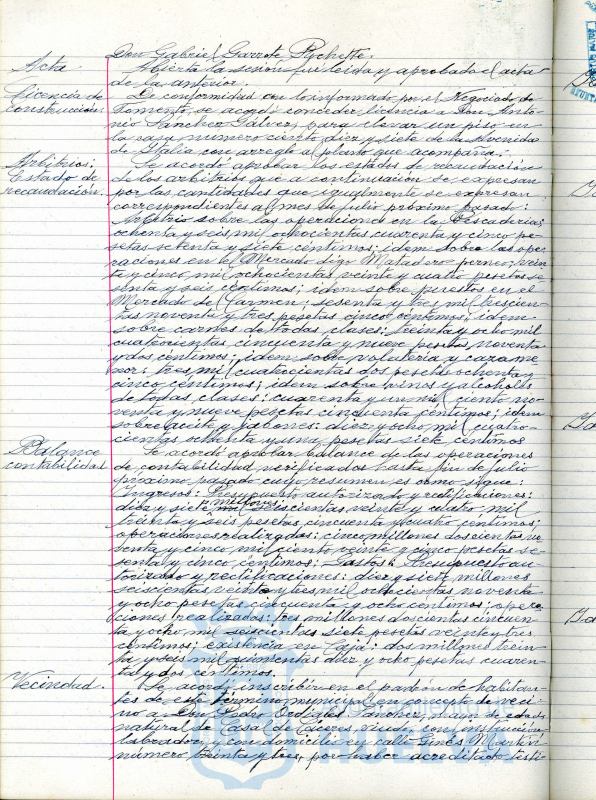 Don Gabriel Garrote Pychette.
Acta
Abierta la sesión fué leida y aprobada el acta
de la anterior.
Licencia de
construcción.
De conformidad con lo informado por el Negociado de
Fomento, se acordó conceder licencia a Don Anto-
nio Sánchez Gálvez, para elevar un piso en
la casa número ciento diez y siete de la Avenida
de Italia con arreglo a plano que acompaña.
Arbitrios:
Estado de
recaudación.
Se acordó aprobar los estados de recaudación
de los arbitrios que a continuación se expresan
por las cantidades que igualmente se expresan
correspondientes al mes de julio próximo pasado:
Arbitrio sobre las operaciones en la Pescadería;
ochenta y seis mil ochocientas cuarenta y cinco pe-
setas setenta y siete céntimos; idem sobre las ope-
raciones en el Mercado digo Matadero porneo; vein
te y cinco mil ochocientas veinte y cuatro pesetas se
senta y seis céntimos; idem sobre puestos en el
Mercado del Carmen; sesenta y tres mil trescien-
tas noventa y tres pesetas cinco céntimos; idem
sobre carnes de todas clases: treinta y ocho mil
cuatrocientas cincuenta y nueve pesetas noventa
y dos céntimos; idem sobre volatería y caza me-
nor; tres mil cuatrocientas dos pesetas ochenta y
cinco céntimos; idem sobre vinos y alcoholes
de todas clases: cuarenta y un mil ciento no-
venta y nueve pesetas cincuenta céntimos; idem
sobre aceite y jabones: diez y ocho mil cuatro-
cientas ochenta y una pesetas siete céntimos
Balance
contabilidad
Se acordó aprobar balance de las operaciones
de contabilidad verificados hasta fin de julio
próximo pasado cuyo resumen es como sigue:
Ingresos: Presupuesto autorizado y rectificaciones:
diez y siete millones seiscientas veinte y cuatro mil
treinta y seis pesetas cincuenta y cuatro céntimos;
operaciones realizadas: cinco millones doscientas no
venta y cinco mil ciento veinte y cinco pesetas se-
senta y cinco céntimos; Gastos: Presupuesto au-
torizado y rectificaciones: diez y siete millones
seiscientas veinte y tres mil ochocientas noventa
y ocho pesetas cincuenta y ocho céntimos; opera-
ciones realizadas: tres millones doscientas cincuen-
ta y ocho mil seiscientas siete pesetas veinte y tres
céntimos; existencia en Caja: dos millones trein
ta y seis mil quinientas diez y ocho pesetas cuaren
ta y dos céntimos.
Vecindad.
Se acordó inscribir en el padrón de habitan-
tes de este término municipal en concepto de veci
no a Don Pedro Ordiales Sánchez, mayor de edad
natural de Casar de Cáceres viudo, con instrucción
labrador, y con domicilio en calle Ginés Martín
número treinta y tres, por haber acreditado testi-